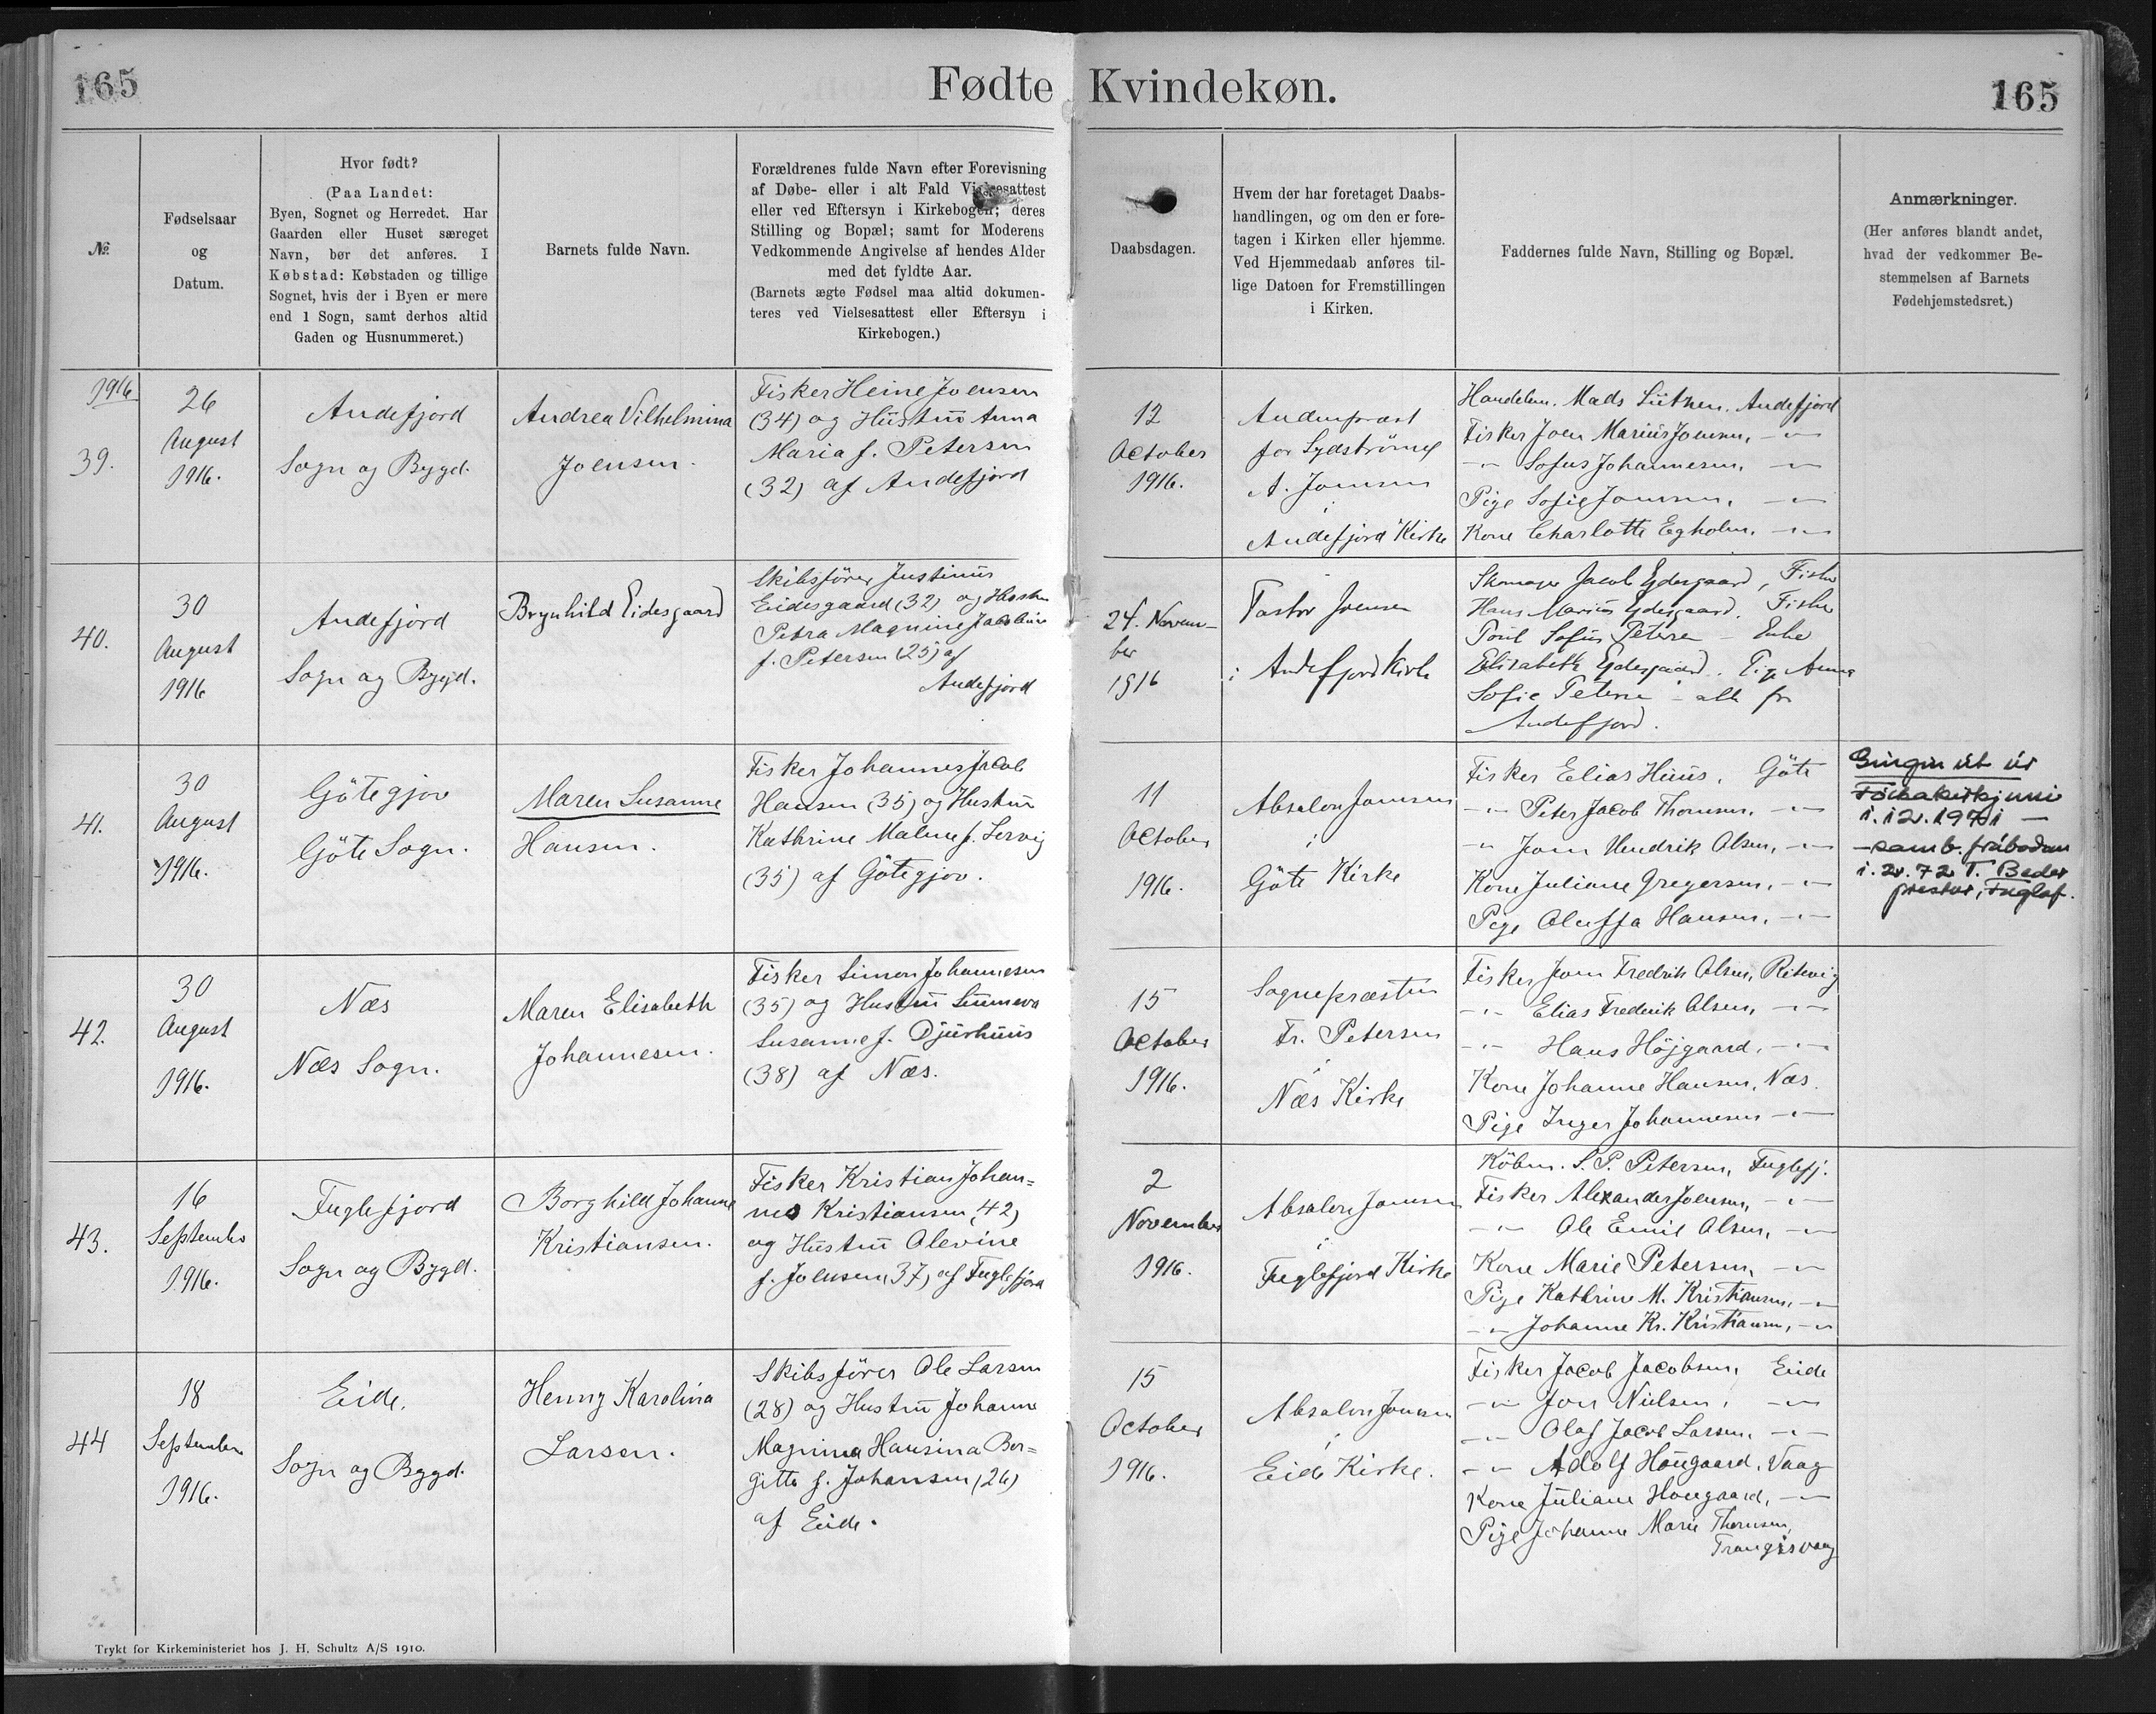 165
Fødte Kvindekøn.
165
№
Fødselsaar
og
Datum.
Hvor født?
(Paa Landet:
Byen, Sognet og Herredet. Har
Gaarden eller Huset særeget
Navn, bør det anføres. I
Købstad: Købstaden og tillige
Sognet, hvis der i Byen er mere
end 1 Sogn, samt derhos altid
Gaden og Husnummeret.)
Barnets fulde Navn.
Forældrenes fulde Navn efter Forevisning
af Døbe- eller i alt Fald Vielsesattest
eller ved Eftersyn i Kirkebogen; deres
Stilling og Bopæl; samt for Moderens
Vedkommende Angivelse af hendes Alder
med det fyldte Aar.
(Barnets ægte Fødsel maa altid dokumen-
teres ved Vielsesattest eller Eftersyn i
Kirkebogen.)
Daabsdagen.
Hvem der har foretaget Daabs-
handlingen, og om den er fore-
tagen i Kirken eller hjemme.
Ved Hjemmedaab anføres til-
lige Datoen for Fremstillingen
i Kirken.
Faddernes fulde Navn, Stilling og Bopæl.
Anmærkninger.
(Her anføres blandt andet,
hvad der vedkommer Be-
stemmelsen af Barnets
Fødehjemstedsret.)
1916
39.
26
August
1916.
Andefjord
Sogn og Bygd.
Andrea Vilhelmina
Joensen.
Fisker Heine Joensen
(34) og Hustru Anna
Maria f. Petersen
(32) af Andefjord
12
October
1916.
Andenpræst
for Sydstrømø
A. Joensen
i
Andefjord Kirke
Handelsm. Mads Andefjord
Fisker Joen Marius Joensen, -"-
-"- Sofus Johannesen, -"-
Pige Sofie Joensen, -"-
Kone Charlotte Egholm, -"-
40.
30
August
1916
Andefjord
Sogn og Bygd.
Brynhild Eidesgaard
Skibsfører Justinus
Eidesgaard (32) og Hustru
Petra Magnine Jacobine
f. Petersen (25) af
Andefjord
24. Novem-
ber
1916
Pastor Joensen
i Andefjord Kirke
Skomager Jacob Ejdesgaard, Fisker
Hans Marius Ejdesgaard. Fisker
Poul Sofus Petersen - Enke
Elisabeth Ejdesgaard. Pige Anna
Sofie Petersen - alle fra
Andefjord.
41.
30
August
1916.
Götegjov
Göte Sogn.
Maren Susanne
Hansen.
Fisker Johannes Jacob
Hansen (35) og Hustru
Kathrine Malene f. Lervig
(35) af Götegjov.
11
October
1916.
Absalon Joensen
i
Göte Kirke
Fisker Elias Huus, Göte
-"- Peter Jacob Thomsen, -"-
-"- Joen Hendrik Olsen, -"-
Kone Juliane Gregersen, -"-
Pige Oluffa Hansen, -"-
Gingin út úr
Fólkakirkjuni
1.12.1971 -
- samb. fráboðan
1.2.72 T. Beder
prestur, Fuglaf.
42.
30
August
1916.
Næs
Næs Sogn.
Maren Elisabeth
Johannesen.
Fisker Simon Johannesen
(35) og Hustru Sunneva
Susanne f. Djurhuus
(38) af Næs.
15
October
1916.
Sognepræsten
Fr. Petersen
i
Næs Kirke
Fisker Joen Fredrik Olsen, Ritevig
-"- Elias Frederik Olsen, -"-
-"- Hans Höjgaard, -"-
Kone Johanne Hansen, Næs.
Pige Inger Johannesen -"-
43.
16
September
1916.
Fuglefjord
Sogn og Bygd.
Borghild Johanne
Kristiansen.
Fisker Kristian Johan=
nes Kristiansen (42)
og Hustru Olevine
f. Joensen (37) af Fuglefjord
2
November
1916.
Absalon Joensen
i
Fuglefjord Kirke
Købm. S. P. Petersen, Fuglefj.
Fisker Alexander Joensen, -"-
-"- Ole Emil Olsen, -"-
Kone Marie Petersen, -"-
Pige Kathrine M. Kristiansen, -"-
-"- Johanne Kr. Kristiansen, -"-
44
18
September
1916.
Eide.
Sogn og Bygd.
Henny Karolina
Larsen.
Skibsfører Ole Larsen
(28) og Hustru Johanne
Magnina Hansina Ber=
gitte f. Johansen (26)
af Eide.
15
October
1916.
Absalon Joensen
i
Eide Kirke.
Fisker Jacob Jacobsen, Eide
-"- Jon Nielsen, -"-
-"- Olaf Jacob Larsen, -"-
-"- Adolf Hougaard, Vaag
Kone Juliane Hougaard, -"-
Pige Johanne Marie Thomsen,
Trangisvaag
Trykt for Kirkeministeriet hos J. H. Schultz A/S 1910.